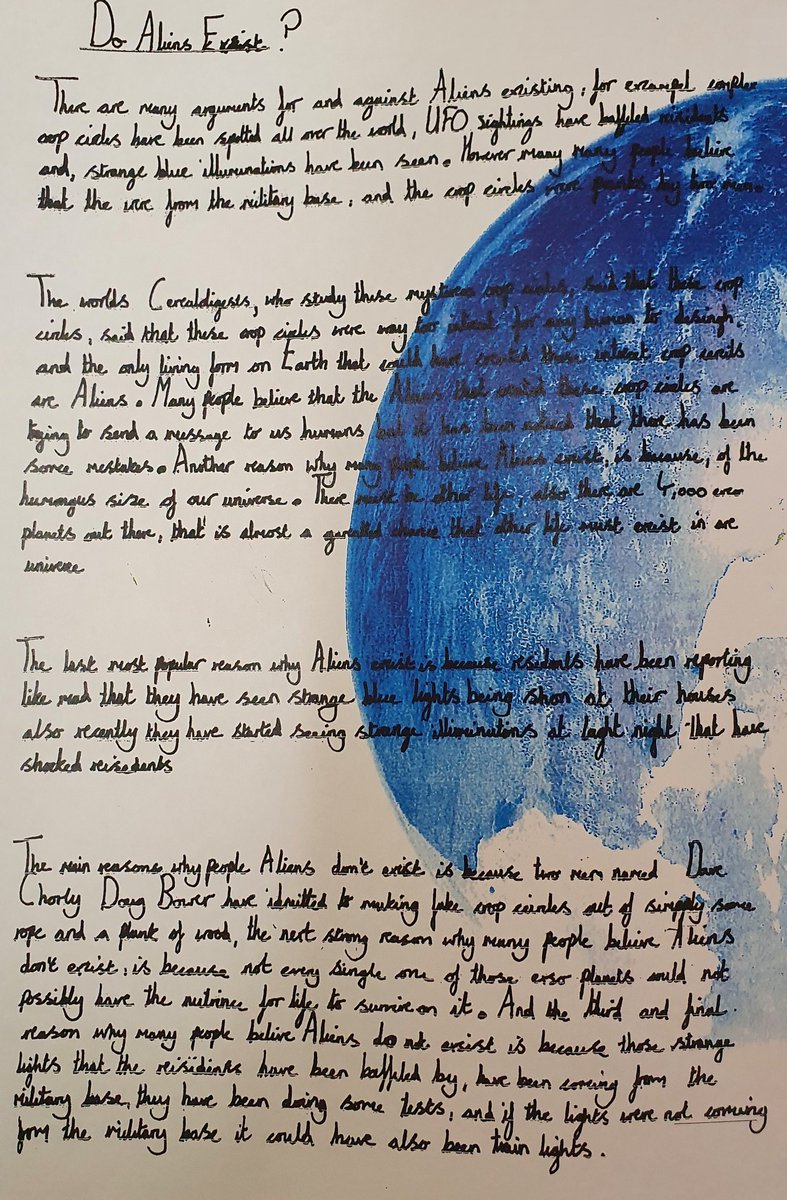 Do Aliens Exist?
There are many arguments for and against Aliens existing, for exampel complex
crop circles have been spotted all over the world, UFO sightings have baffeled residents
and, strange blue illumunations have been seen. However many many people believe
that the were from the military base, and the crop circles were pranks by two men.
The worlds Cerealdigests, who study these mysterous crop circles, said that these crop
circles, said that these crop circles were way too intreat for any human to desingh,
and the only living form on Earth that could have created these intreat crop cercits
are Aliens. Many people believe that the Aliens that created these crop circles are
trying to send a message to us humans but it has been noticed that there has been
some mestakes. Another reason why many people believe Aliens exist, is because, of the
humongus size of our universe. There must be other life, also there are 4,000 exso
planets out there, that is almost a garented chance that other life must exist in are
univere
The last most popular reason why Aliens exist is because residents have been reporting
like mad that they have seen strange blue lights being shon at their houses
also recently they have started seeing strange illiminutons at laght night that have
shocked reisedants
The main reasons why people Aliens don't exist is because two men named Dave
Chorly Doug Bower have idmitted to making fake crop circles out of simpply some
rope and a plank of wood, the next strong reason why many people believe Aliens
don't exist, is because not every single one of those exso planets could not
possibly have the nutrince for life to survive on it. And the third and final
reason why many people belive Aliens do not exsist is because those strange
lights that the reisidinks have been baffeled by, have been coming from the
military base, they have been doing some tests, and if the lights were not coming
form the military base it could have also been train lights.